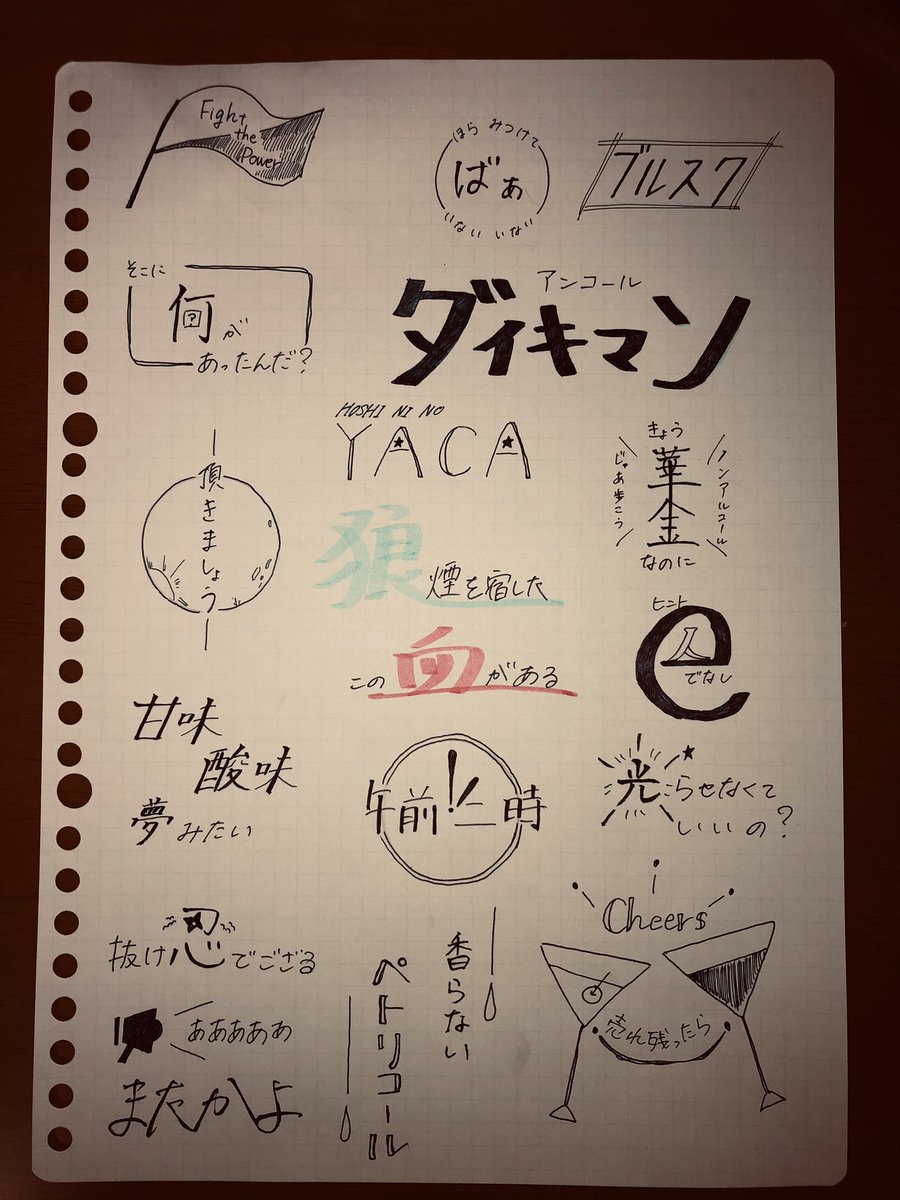 Fight
the
Power
ほら みつけて
ばぁ
いない いない
ブルスク
そこに
何が
あったんだ?
アンコール
ダイキマン
HOSHI NI NO
YACA
頂きましょう
きょう
華金
なのに
ノンアルコール
じゃあ歩こう
狼煙を宿した
この血がある
ヒント
e
人
でなし
甘味
酸味
夢みたい
午前!二時
光らせなくて
いいの?
抜け忍でござる
あああああ
またかよ
香らない
ペトリコール
Cheers
売れ残ったら